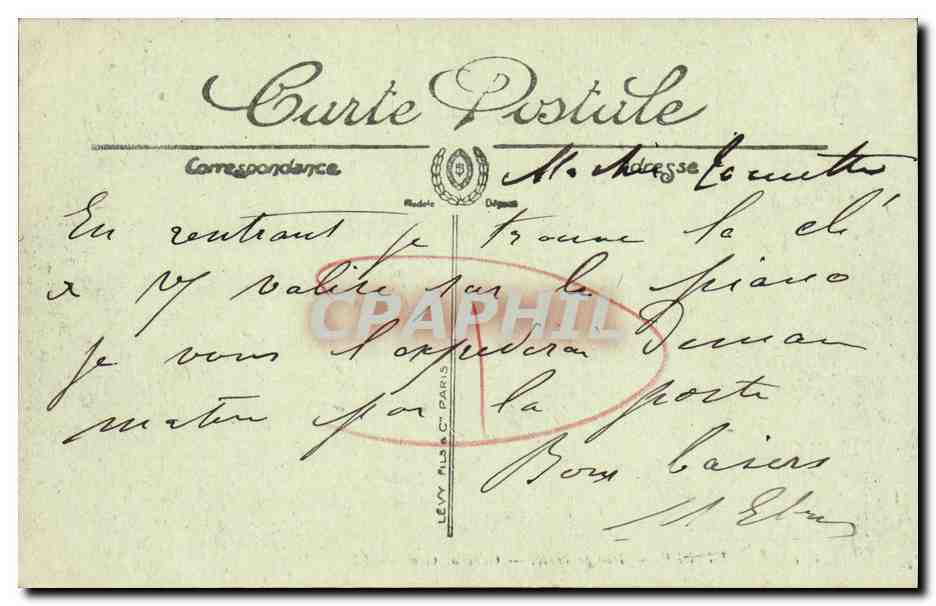 Carte Postale
Correspondance
Adresse
Modèle Déposé
En rentrant je trouve la clé
valise sur le piano
je vous l'expédirai demain
matin par la poste
Bons baisers
CPAPHIL
LÉVY FILS & Cie PARIS